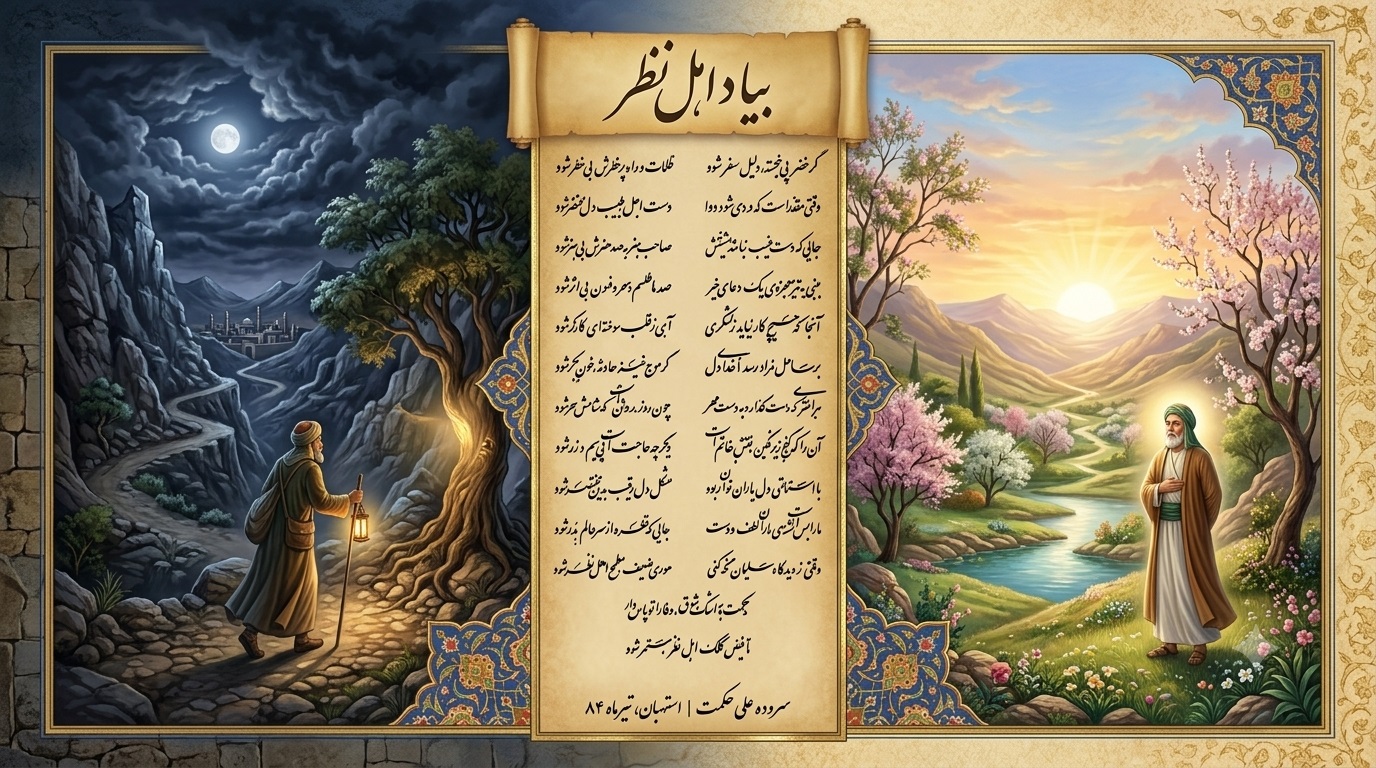 بیاد اهل نظر
گر خضر پی خجسته، دلیل سفر شود ظلمات و راه پرخطرش بی خطر شود
وقتی مقدر است که دردی شود دوا دست اجل طبیب دل محتضر شود
جایی که دست غیب نباشد پشتش صاحب هنر به صد هنرش بی هنر شود
بینی به تیر معجزه‌ی یک دعای خیر صدها طلسم و سحر و فسون بی اثر شود
آنجا که هیچ کار نیاید ز لشکری آهی ز قلب سوخته‌ای کارگر شود
بر ساحل مراد رسد ناخدای دل گر موج خیز حادثه، خون جگر شود
هر که دست گذارد به دست مهر چون روز روشن است که شامش سحر شود
آن را که گنج زیر نگین نقش خاتم است دیگر چه حاجت است پی سیم و زر شود
با دل یاران بود مشکل دل رقیب بدین مختصر شود
ما را بس است یاران دوست جایی که قطره از سر عالم بدر شود
وقتی ز دیدگاه سلیمان نگه کنی موری ضعیف مطمح اهل نظر شود
حکمت به اشک شوق، وفا را تو پاس دار
تا فیض کلک اهل نظر مستمر شود
سروده علی حکمت | استهبان، تیرماه ۸۴